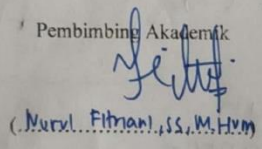 Pembimbing Akademik
(Nurul Fitriani, SS, M.Hum)